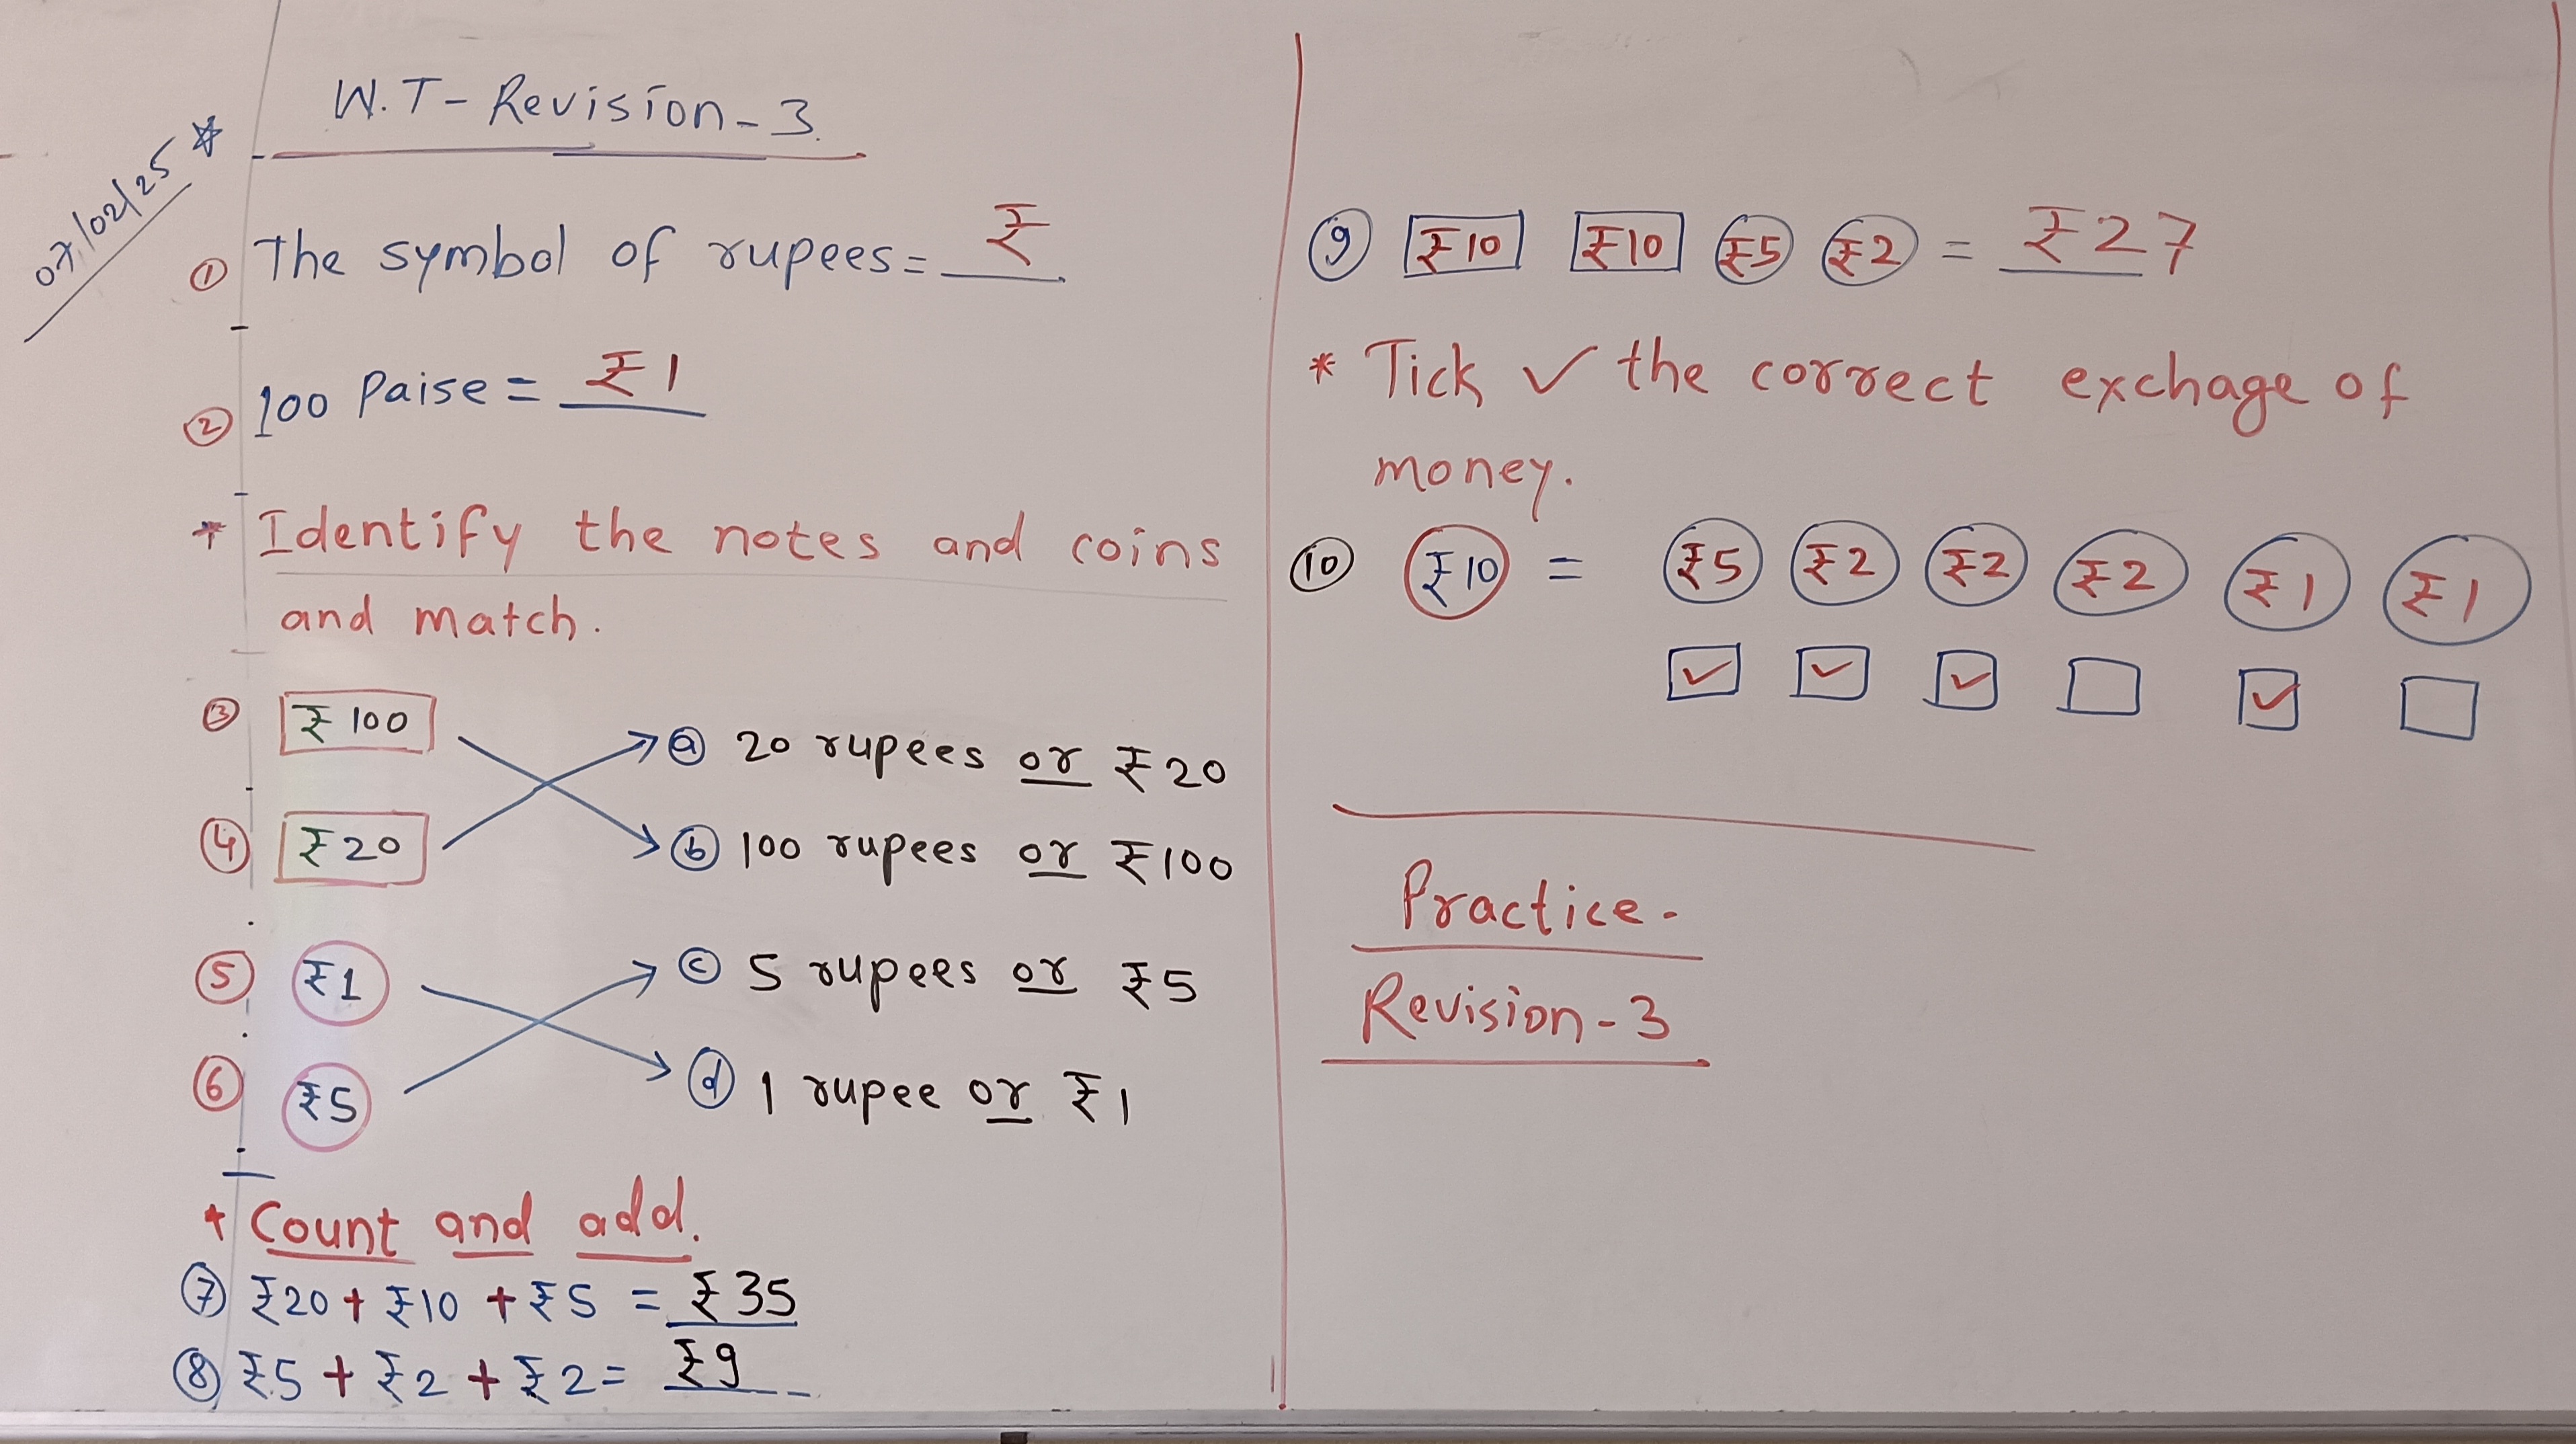 07/02/25
W.T- Revision-3.
① The symbol of rupees= ₹
② 100 Paise = ₹1
* Identify the notes and coins
and match.
③ ₹100
ⓐ 20 rupees or ₹20
④ ₹20
ⓑ 100 rupees or ₹100
⑤ ₹1
ⓒ 5 rupees or ₹5
⑥ ₹5
ⓓ 1 rupee or ₹1
* Count and add.
⑦ ₹20 + ₹10 + ₹5 = ₹35
⑧ ₹5 + ₹2 + ₹2 = ₹9
⑨ ₹10 ₹10 ₹5 ₹2 = ₹27
* Tick ✓ the correct exchage of
money.
⑩ ₹10 = ₹5 ₹2 ₹2 ₹2 ₹1 ₹1
Practice-
Revision-3